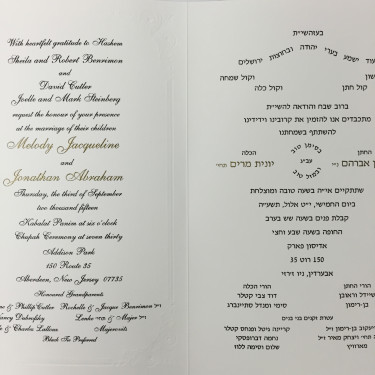 With heartfelt gratitude to Hashem
Sheila and Robert Benrimon
and
David Cutler
Joelle and Mark Steinberg
request the honour of your presence
at the marriage of their children
Melody Jacqueline
and
Jonathan Abraham
Thursday, the third of September
two thousand fifteen
Kabalat Panim at six o'clock
Chupah Ceremony at seven thirty
Addison Park
150 Route 35
Aberdeen, New Jersey 07735
Honoured Grandparents
& Phillip Cutler Rochelle & Jacque Benrimon ז״ל
Dubrofsky Lenke ע״ה & Major ז״ל
& Charles Lallouz Majerovits
Black Tie Preferred
בעזהשי״ת
עוד ישמע בערי יהודה ובחוצות ירושלים
קול ששון וקול שמחה
קול חתן וקול כלה
ברוב שבח והודאה להשי״ת
מתכבדים אנו להזמין את קרובינו וידידינו
להשתתף בשמחתנו
החתן
אברהם ני״ו
בסימן טוב
עב״ג
ובמזל טוב
הכלה
יונית מרים תחי׳
שתתקיים אי״ה בשעה טובה ומוצלחת
ביום החמישי, י״ט אלול, תשע״ה
קבלת פנים בשעה שש בערב
החופה בשעה שבע וחצי
אדיסון פארק
150 רוט 35
אבערדין, ניו זירזי
הורי החתן
בן-רימון
הורי הכלה
דוד צבי קטלר
סימי ומנדל סתיינברג